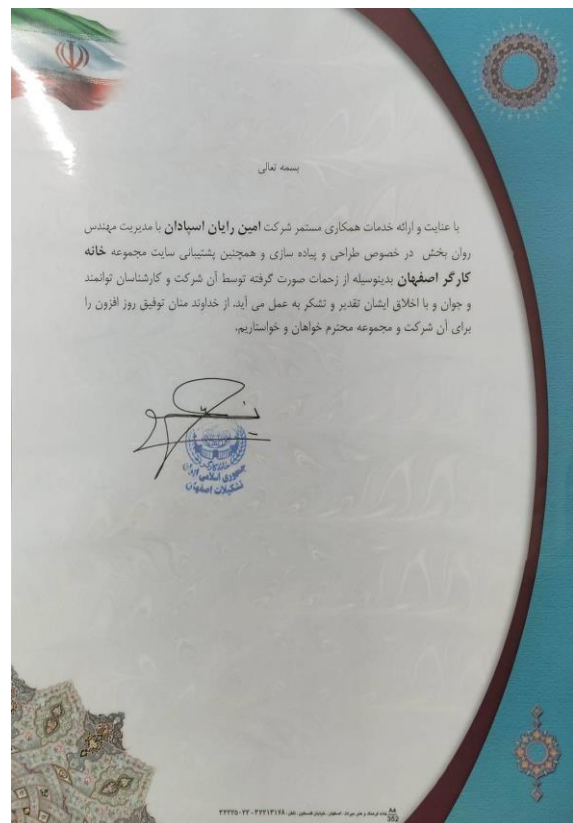 بسمه تعالی
با عنایت و ارائه خدمات همکاری مستمر شرکت امین رایان اسپادان با مدیریت مهندس
روان بخش در خصوص طراحی و پیاده سازی و همچنین پشتیبانی سایت مجموعه خانه
کارگر اصفهان بدینوسیله از زحمات صورت گرفته توسط آن شرکت و کارشناسان توانمند
و جوان و با اخلاق ایشان تقدیر و تشکر به عمل می آید، از خداوند منان توفیق روز افزون را
برای آن شرکت و مجموعه محترم خواهان و خواستاریم.
خانه کارگر
جمهوری اسلامی ایران
تشکیلات اصفهان
A4
352